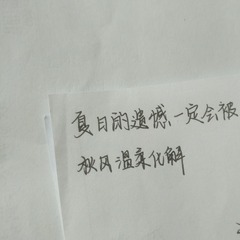 夏日的遗憾一定会被
秋风温柔化解